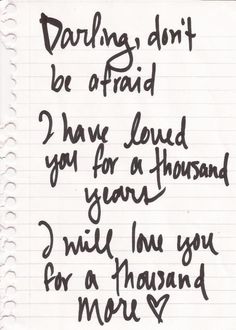 Darling, don't
be afraid
I have loved
you for a thousand
years
I will love you
for a thousand
more ♡